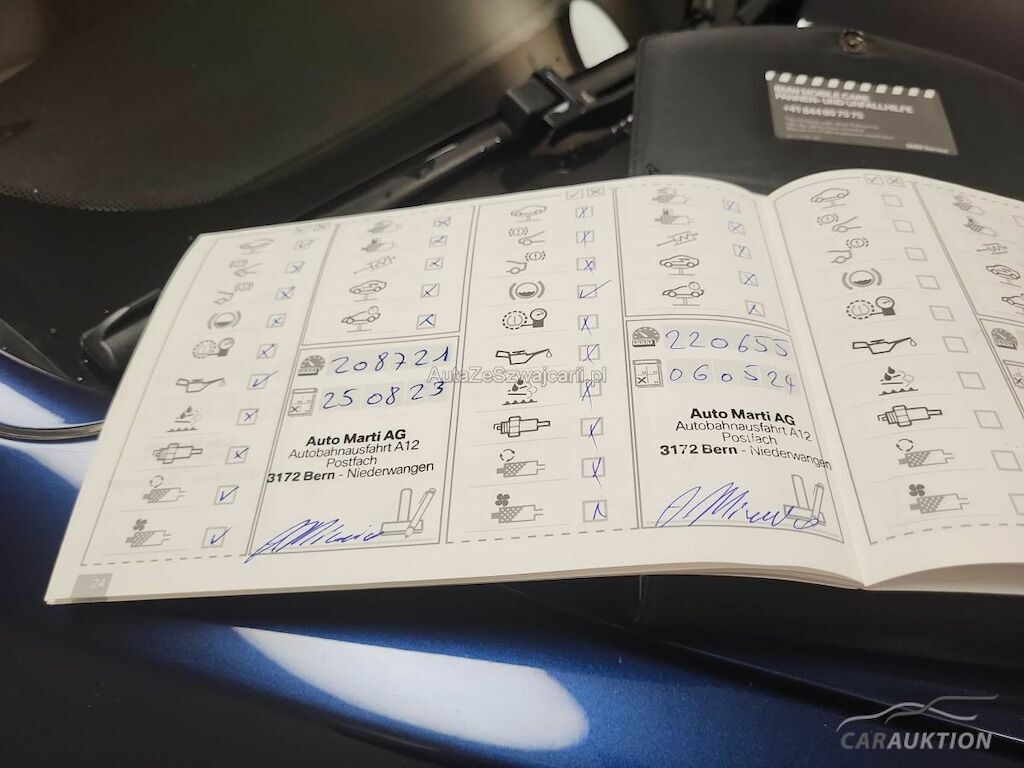 BMW MOBILE CARE
PANNEN- UND UNFALLHILFE
208721
250823
Auto Marti AG
Autobahnausfahrt A12
Postfach
3172 Bern - Niederwangen
220655
060524
Auto Marti AG
Autobahnausfahrt A12
Postfach
3172 Bern - Niederwangen
24
AutaZeSzwajcarii.pl
CARAUKTION